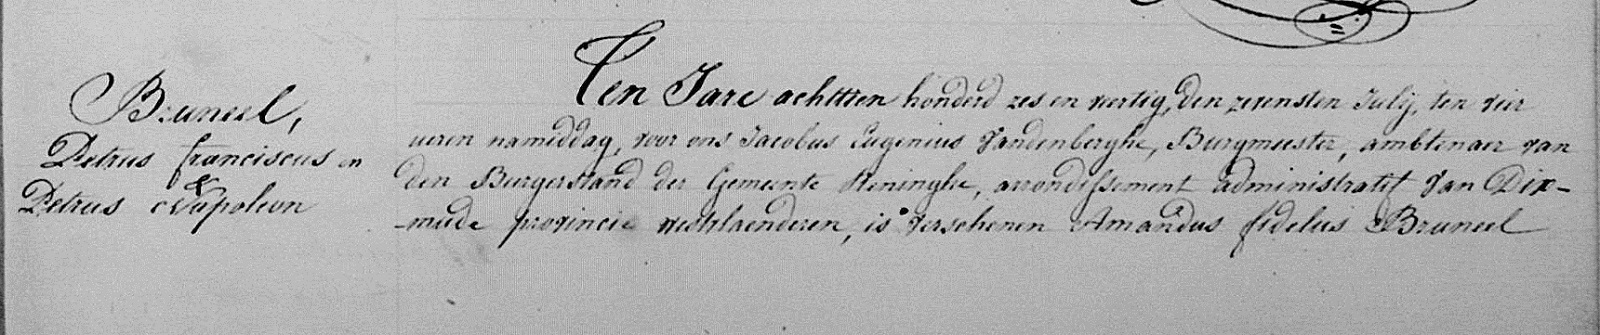 Bruneel,
Petrus franciscus en
Petrus Napoleon
Ten Jare achttien honderd zes en veertig, den zevensten Julij, ten vier
uren namiddag, voor ons Jacobus Eugenius Vandenberghe, Burgmeester, ambtenaer van
den Burgerstand der Gemeente Reninghe, arrondissement administratif van Dix-
-mude provincie westvlaenderen, is verschenen Amandus fidelis Bruneel